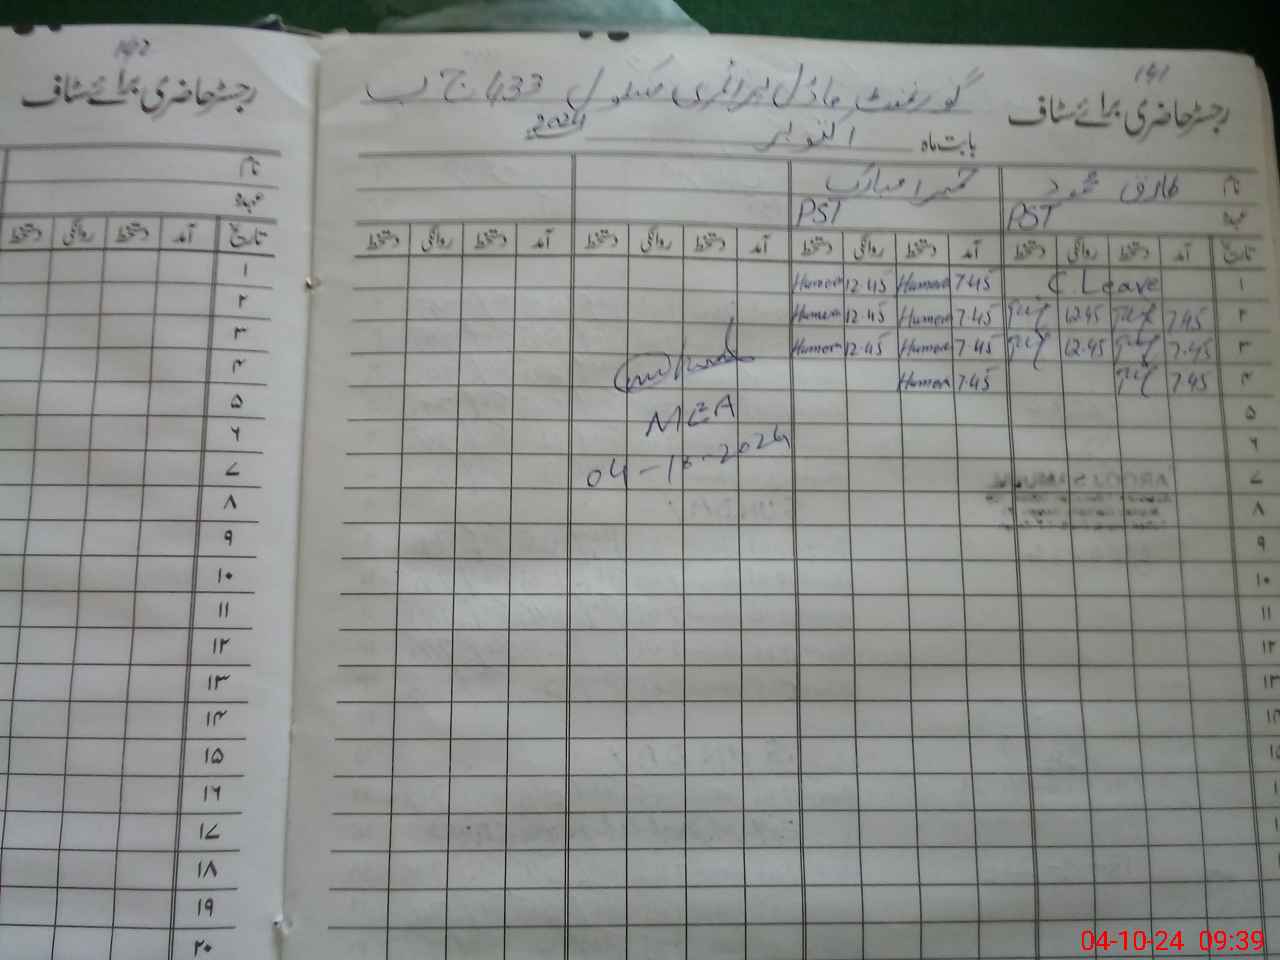 142
رجسٹر حاضری برائے سٹاف
نام
عہدہ
تاریخ آمد دستخط روانگی دستخط
۱
۲
۳
۴
۵
۶
۷
۸
۹
۱۰
۱۱
۱۲
۱۳
۱۴
۱۵
۱۶
۱۷
۱۸
۱۹
۲۰
141
رجسٹر حاضری برائے سٹاف گورنمنٹ ماڈل پرائمری سکول 433 ج ب
بابت ماہ اکتوبر 2024
نام طارق محمود حمیرا مبارک
عہدہ PST PST
تاریخ آمد دستخط روانگی دستخط آمد دستخط روانگی دستخط آمد دستخط روانگی دستخط آمد دستخط روانگی دستخط
۱ C. Leave 7.45 Humera 12.45 Humera
۲ 7.45 12.45 7.45 Humera 12.45 Humera
۳ 7.45 12.45 7.45 Humera 12.45 Humera
۴ 7.45 7.45 Humera
۵
۶
۷
۸
۹
۱۰
۱۱
۱۲
۱۳
MEA
04-10-2024
04-10-24 09:39